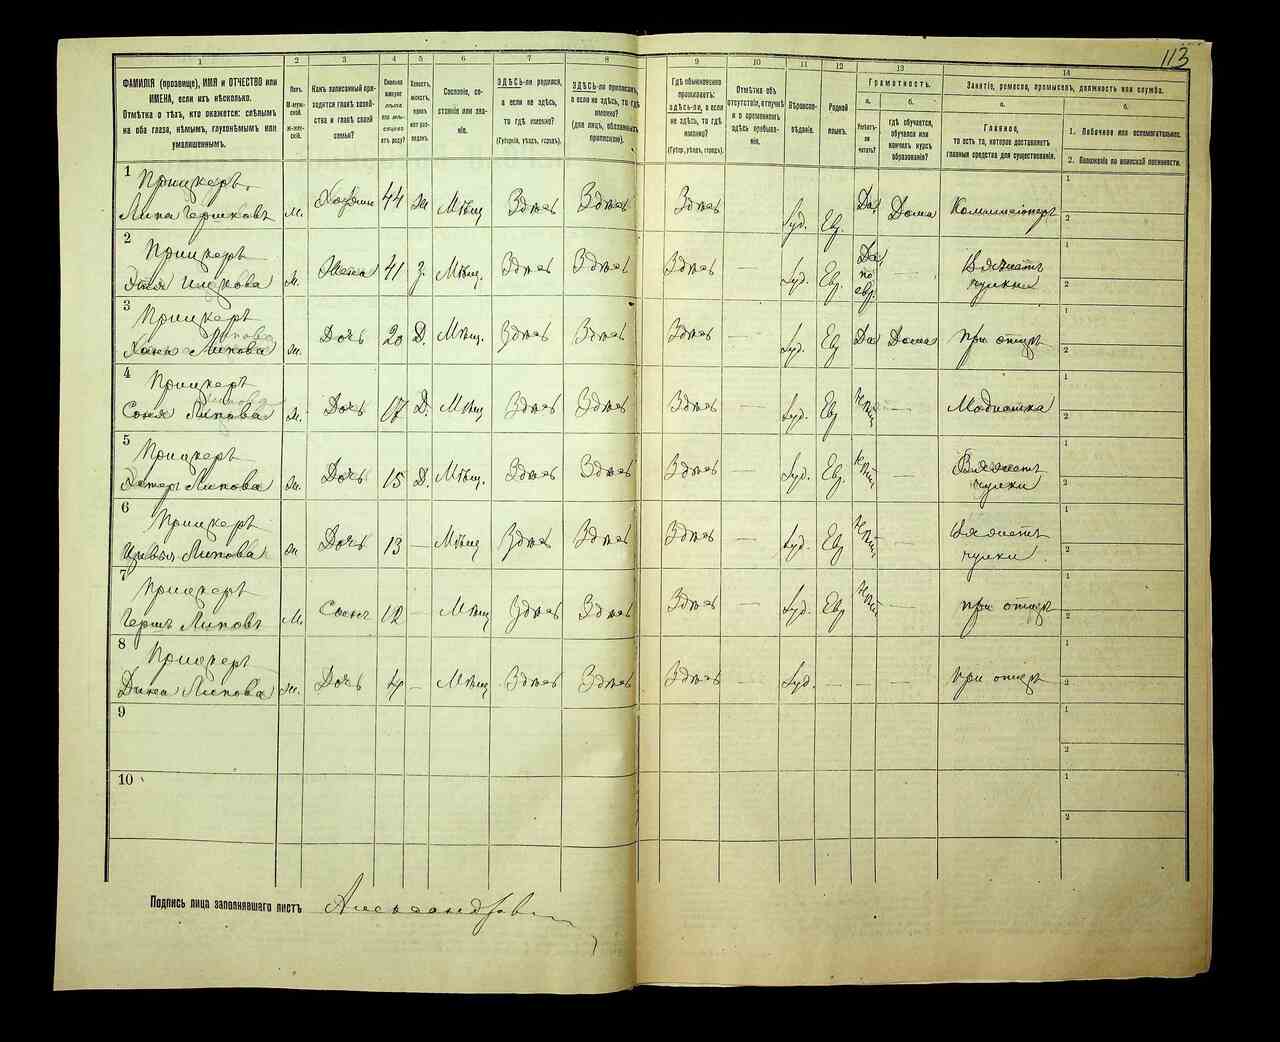 113
1 2 3 4 5 6 7 8 9 10 11 12 13 14
ФАМИЛІЯ (прозвище), ИМЯ и ОТЧЕСТВО или
ИМЕНА, если ихъ нѣсколько.
Отмѣтка о тѣхъ, кто окажется: слѣпымъ
на оба глаза, нѣмымъ, глухонѣмымъ или
умалишеннымъ.
Полъ.
М-муж-
ской.
ж-жен-
скій.
Какъ записанный при-
ходится главѣ хозяй-
ства и главѣ своей
семьи?
Сколько
минуло
лѣтъ
или мѣ-
сяцевъ
отъ роду?
Холостъ,
женатъ,
вдовъ
или раз-
веденъ.
Сословіе, со-
стояніе или зва-
ніе.
ЗДѢСЬ-ли родился,
а если не здѣсь,
то гдѣ именно?
(Губернія, уѣздъ, городъ).
ЗДѢСЬ-ли приписанъ,
а если не здѣсь, то гдѣ
именно?
(для лицъ, обязанныхъ
припиской).
Гдѣ обыкновенно
проживаетъ:
здѣсь-ли, а если
не здѣсь, то гдѣ
именно?
(Губер., уѣздъ, городъ).
Отмѣтка объ
отсутствіи, отлучкѣ
и о временномъ
здѣсь пребыва-
ніи.
Вѣроиспо-
вѣданіе.
Родной
языкъ.
Грамотность.
а. б.
Умѣетъ-
ли
читать?
гдѣ обучается,
обучался или
кончилъ курсъ
образованія?
Занятіе, ремесло, промыселъ, должность или служба.
а. б.
Главное,
то есть то, которое доставляетъ
главныя средства для существованія.
1. Побочное или вспомогательное.
2. Положеніе по воинской повинности.
1 Прицкеръ
Липа Гершковъ м. Хозяинъ 44 ж Мѣщ Здѣсь Здѣсь Здѣсь Іуд. Евр. Да Дома Коммиссіонеръ 1 2
2 Прицкеръ
ж. Жена 41 З. Мѣщ. Здѣсь Здѣсь Здѣсь — Іуд. Евр. Да, по евр. — Вяжетъ чулки 1 2
3 Прицкеръ
Хана Липова ж. Дочь 20 Д. Мѣщ. Здѣсь Здѣсь Здѣсь — Іуд. Евр Да Дома при отцѣ 1 2
4 Прицкеръ
Соня Липова ж. Дочь 17 Д. Мѣщ Здѣсь Здѣсь Здѣсь — Іуд. Евр Нѣтъ — Модистка 1 2
5 Прицкеръ
Липова ж. Дочь 15 Д. Мѣщ. Здѣсь Здѣсь Здѣсь — Іуд. Евр. Нѣтъ — Вяжетъ чулки 1 2
6 Прицкеръ
Цивья Липова ж Дочь 13 — Мѣщ Здѣсь Здѣсь Здѣсь — Іуд. Евр Нѣтъ — Вяжетъ чулки 1 2
7 Прицкеръ
Гершъ Липовъ м. Сынъ 12 — Мѣщ Здѣсь Здѣсь Здѣсь — Іуд. Евр Нѣтъ — при отцѣ 1 2
8 Прицкеръ
Липова ж. Дочь 4 — Мѣщ Здѣсь Здѣсь Здѣсь — Іуд. — — — при отцѣ 1 2
9 1 2
10 1 2
Подпись лица заполнявшаго листъ